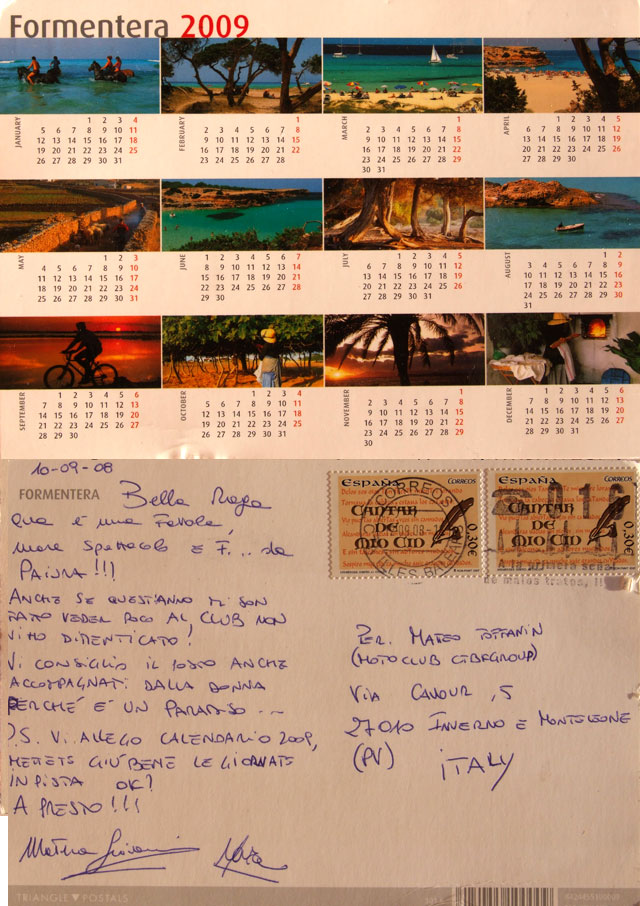 Formentera 2009
JANUARY
1 2 3 4
5 6 7 8 9 10 11
12 13 14 15 16 17 18
19 20 21 22 23 24 25
26 27 28 29 30 31
FEBRUARY
1
2 3 4 5 6 7 8
9 10 11 12 13 14 15
16 17 18 19 20 21 22
23 24 25 26 27 28
MARCH
1
2 3 4 5 6 7 8
9 10 11 12 13 14 15
16 17 18 19 20 21 22
23 24 25 26 27 28 29
30 31
APRIL
1 2 3 4 5
6 7 8 9 10 11 12
13 14 15 16 17 18 19
20 21 22 23 24 25 26
27 28 29 30
MAY
1 2 3
4 5 6 7 8 9 10
11 12 13 14 15 16 17
18 19 20 21 22 23 24
25 26 27 28 29 30 31
JUNE
1 2 3 4 5 6 7
8 9 10 11 12 13 14
15 16 17 18 19 20 21
22 23 24 25 26 27 28
29 30
JULY
1 2 3 4 5
6 7 8 9 10 11 12
13 14 15 16 17 18 19
20 21 22 23 24 25 26
27 28 29 30 31
AUGUST
1 2
3 4 5 6 7 8 9
10 11 12 13 14 15 16
17 18 19 20 21 22 23
24 25 26 27 28 29 30
31
SEPTEMBER
1 2 3 4 5 6
7 8 9 10 11 12 13
14 15 16 17 18 19 20
21 22 23 24 25 26 27
28 29 30
OCTOBER
1 2 3 4
5 6 7 8 9 10 11
12 13 14 15 16 17 18
19 20 21 22 23 24 25
26 27 28 29 30 31
NOVEMBER
1
2 3 4 5 6 7 8
9 10 11 12 13 14 15
16 17 18 19 20 21 22
23 24 25 26 27 28 29
30
DECEMBER
1 2 3 4 5 6
7 8 9 10 11 12 13
14 15 16 17 18 19 20
21 22 23 24 25 26 27
28 29 30 31
10-09-08
FORMENTERA
Bella
QUA E UNA FAVOLA,
MARE SPETTACOLO E F... DA
PAURA!!!
ANCHE SE QUEST'ANNO MI SON
FATTO VEDER POCO AL CLUB NON
VI HO DIMENTICATO!
VI CONSIGLIO IL POSTO ANCHE
ACCOMPAGNATI DALLA DONNA
PERCHÉ E' UN PARADISO...
P.S. VI ALLEGO CALENDARIO 2009,
METTETE GIU' BENE LE GIORNATE
IN PISTA OK?
A PRESTO!!!
ESPAÑA CORREOS
CANTAR
DE
MIO CID
0,30€
ESPAÑA CORREOS
CANTAR
DE
MIO CID
0,30€
CORREOS
016
PER. MATEO TOFFANIN
(MOTOCLUB CIBEGROUP)
VIA CAVOUR, 5
27010 INVERNO E MONTELEONE
(PV) ITALY
TRIANGLE ▼ POSTALS